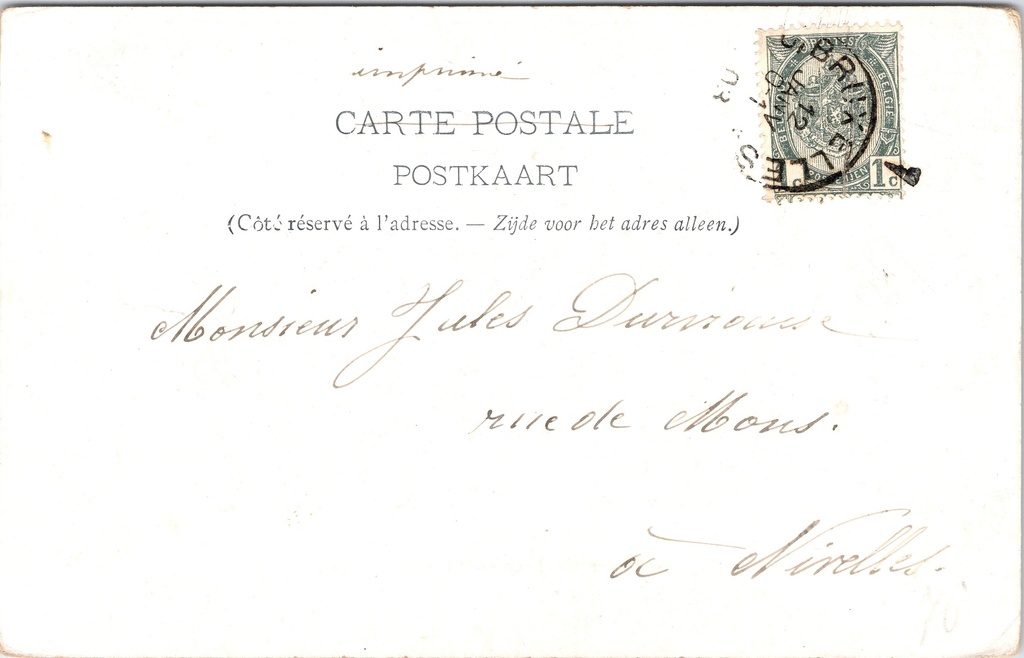 imprimé
CARTE POSTALE
POSTKAART
(Côté réservé à l'adresse. — Zijde voor het adres alleen.)
Monsieur Jules
rue de Mons.
à Nivelles.
POSTES
BELGIE
1c 1c
BRUXELLES
12
JANV
03